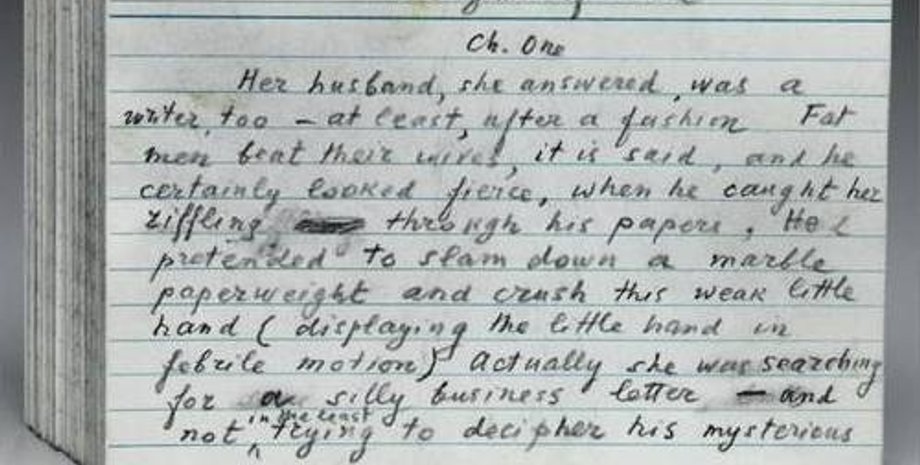 Ch. One
Her husband, she answered, was a
writer, too – at least, after a fashion Fat
men beat their wives, it is said, and he
certainly looked fierce, when he caught her
riffling through his papers, He
pretended to slam down a marble
paperweight and crush this weak little
hand ( displaying the little hand in
febrile motion) Actually she was searching
for a silly business letter – and
in the least
not trying to decipher his mysterious